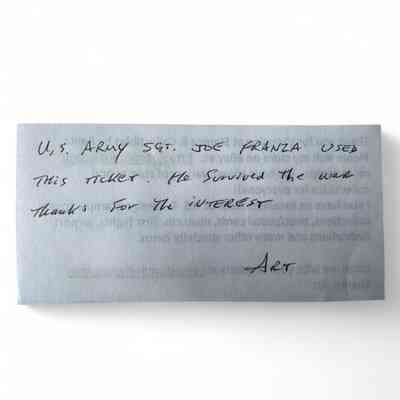 U.S. ARMY SGT. JOE FRANZA USED
THIS TICKET. He Survived the war
Thanks For The INTEREST
ART